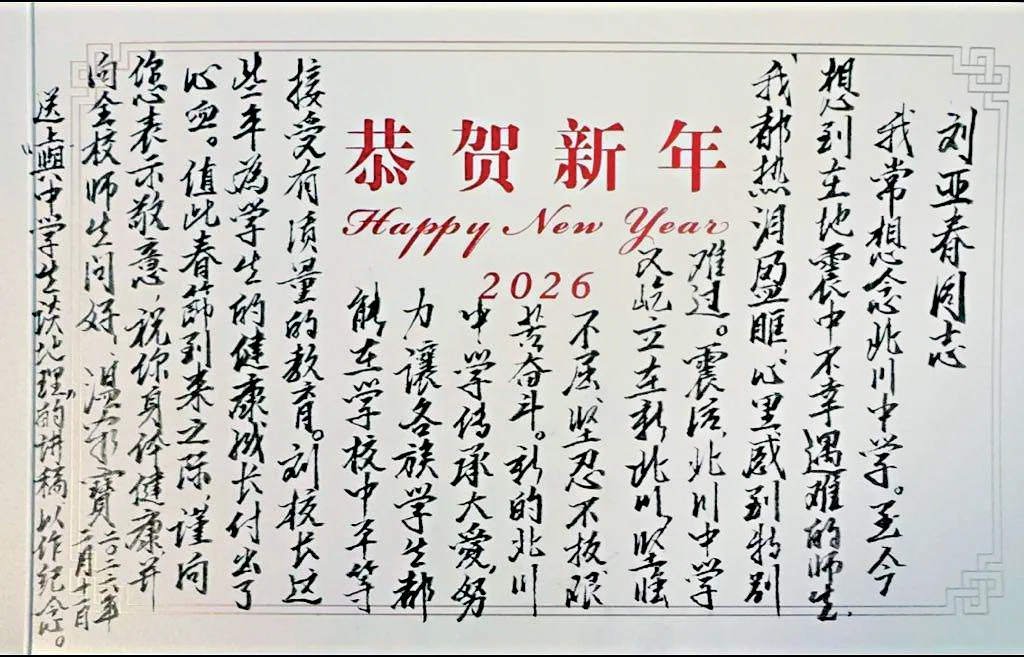 恭贺新年
Happy New Year
2026
刘亚春同志
我常想念北川中学。至今
想到在地震中不幸遇难的师生,
我都热泪盈眶,心里感到特别
难过。震后,北川中学
又屹立在新北川,坚强
不屈、坚忍不拔、艰
苦奋斗。新的北川
中学传承大爱,努
力讓各族学生都
能在学校中平等
接受有质量的教育。刘校长这
些年為学生的健康成长付出了
心血。值此春節到来之际,谨向
您表示敬意,祝你身体健康并
向全校师生问好,温家寶
二〇二六年
二月十一日
送上“與中学生谈地理”的讲稿以作纪念。